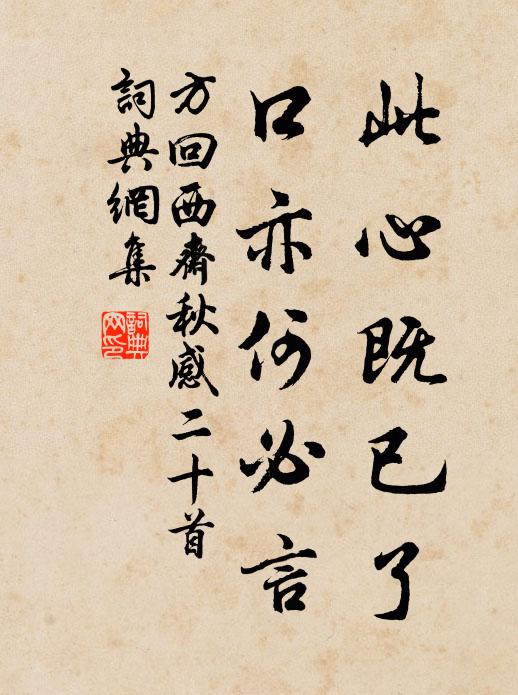 此心既已了
口亦何必言
方回西齋秋感二十首
詞典網集
詞典網印